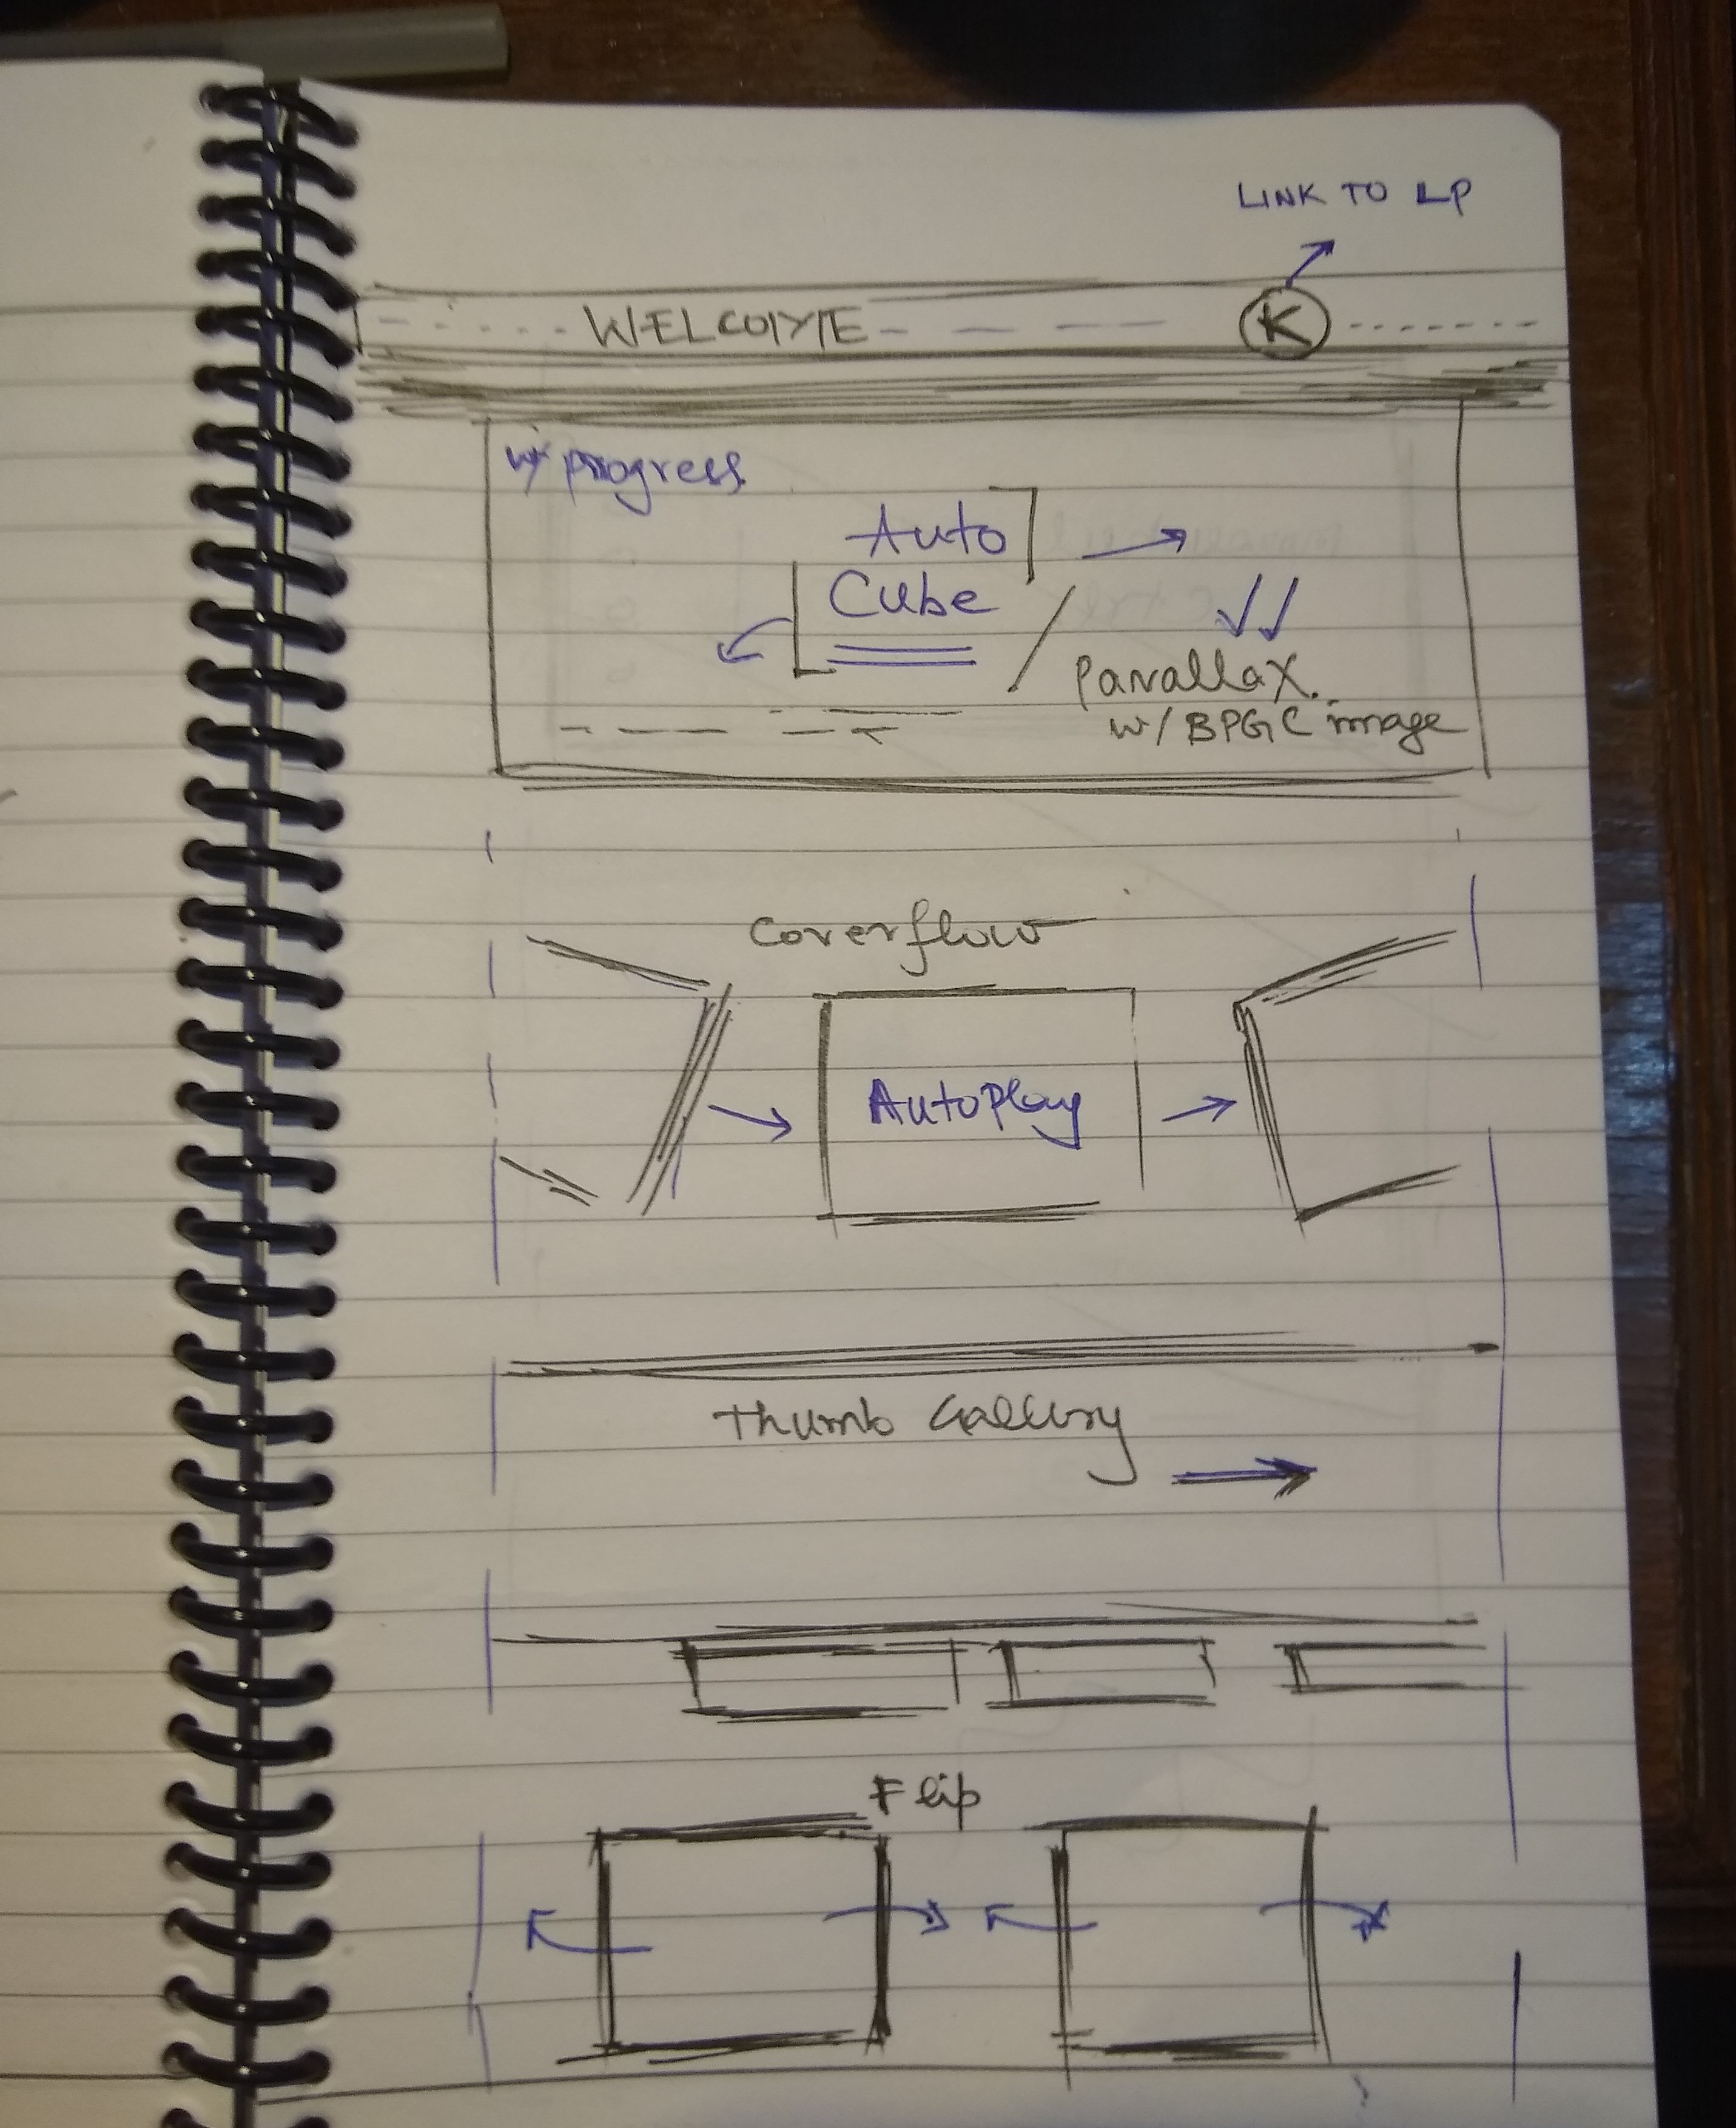 LINK TO LP
WELCOME
K
w/ progress
Auto
Cube
Parallax.
w/ BPGC image
Coverflow
AutoPlay
Thumb Gallery
Flip